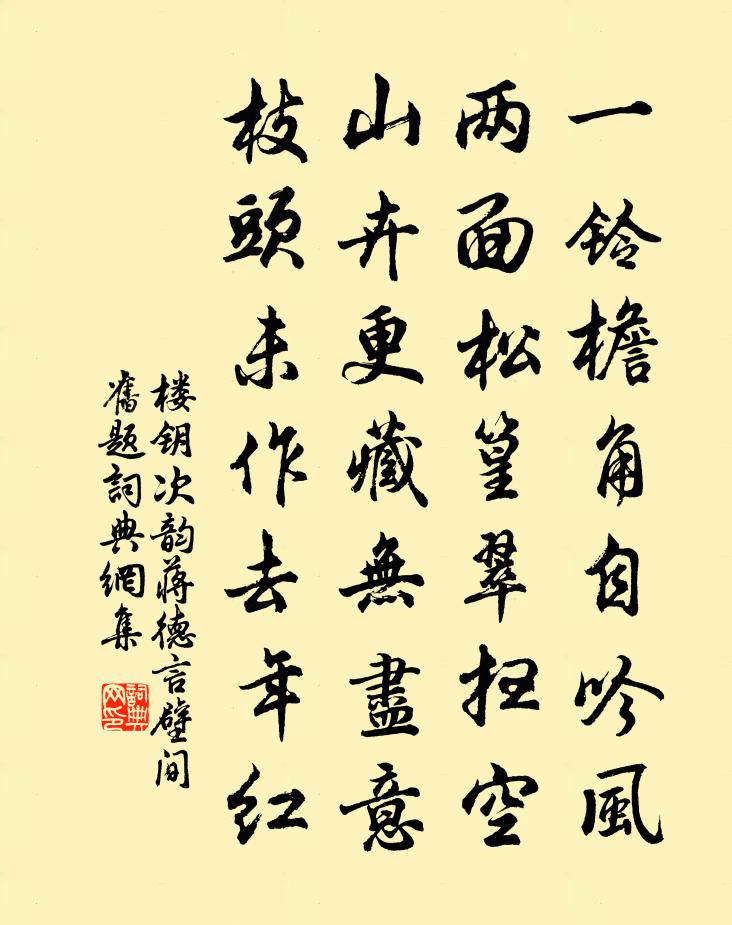 一铃檐角自吟風
两面松篁翠扫空
山卉更藏無盡意
枝頭未作去年红
楼钥次韵蒋德言壁间
舊题詞典網集
詞典网印